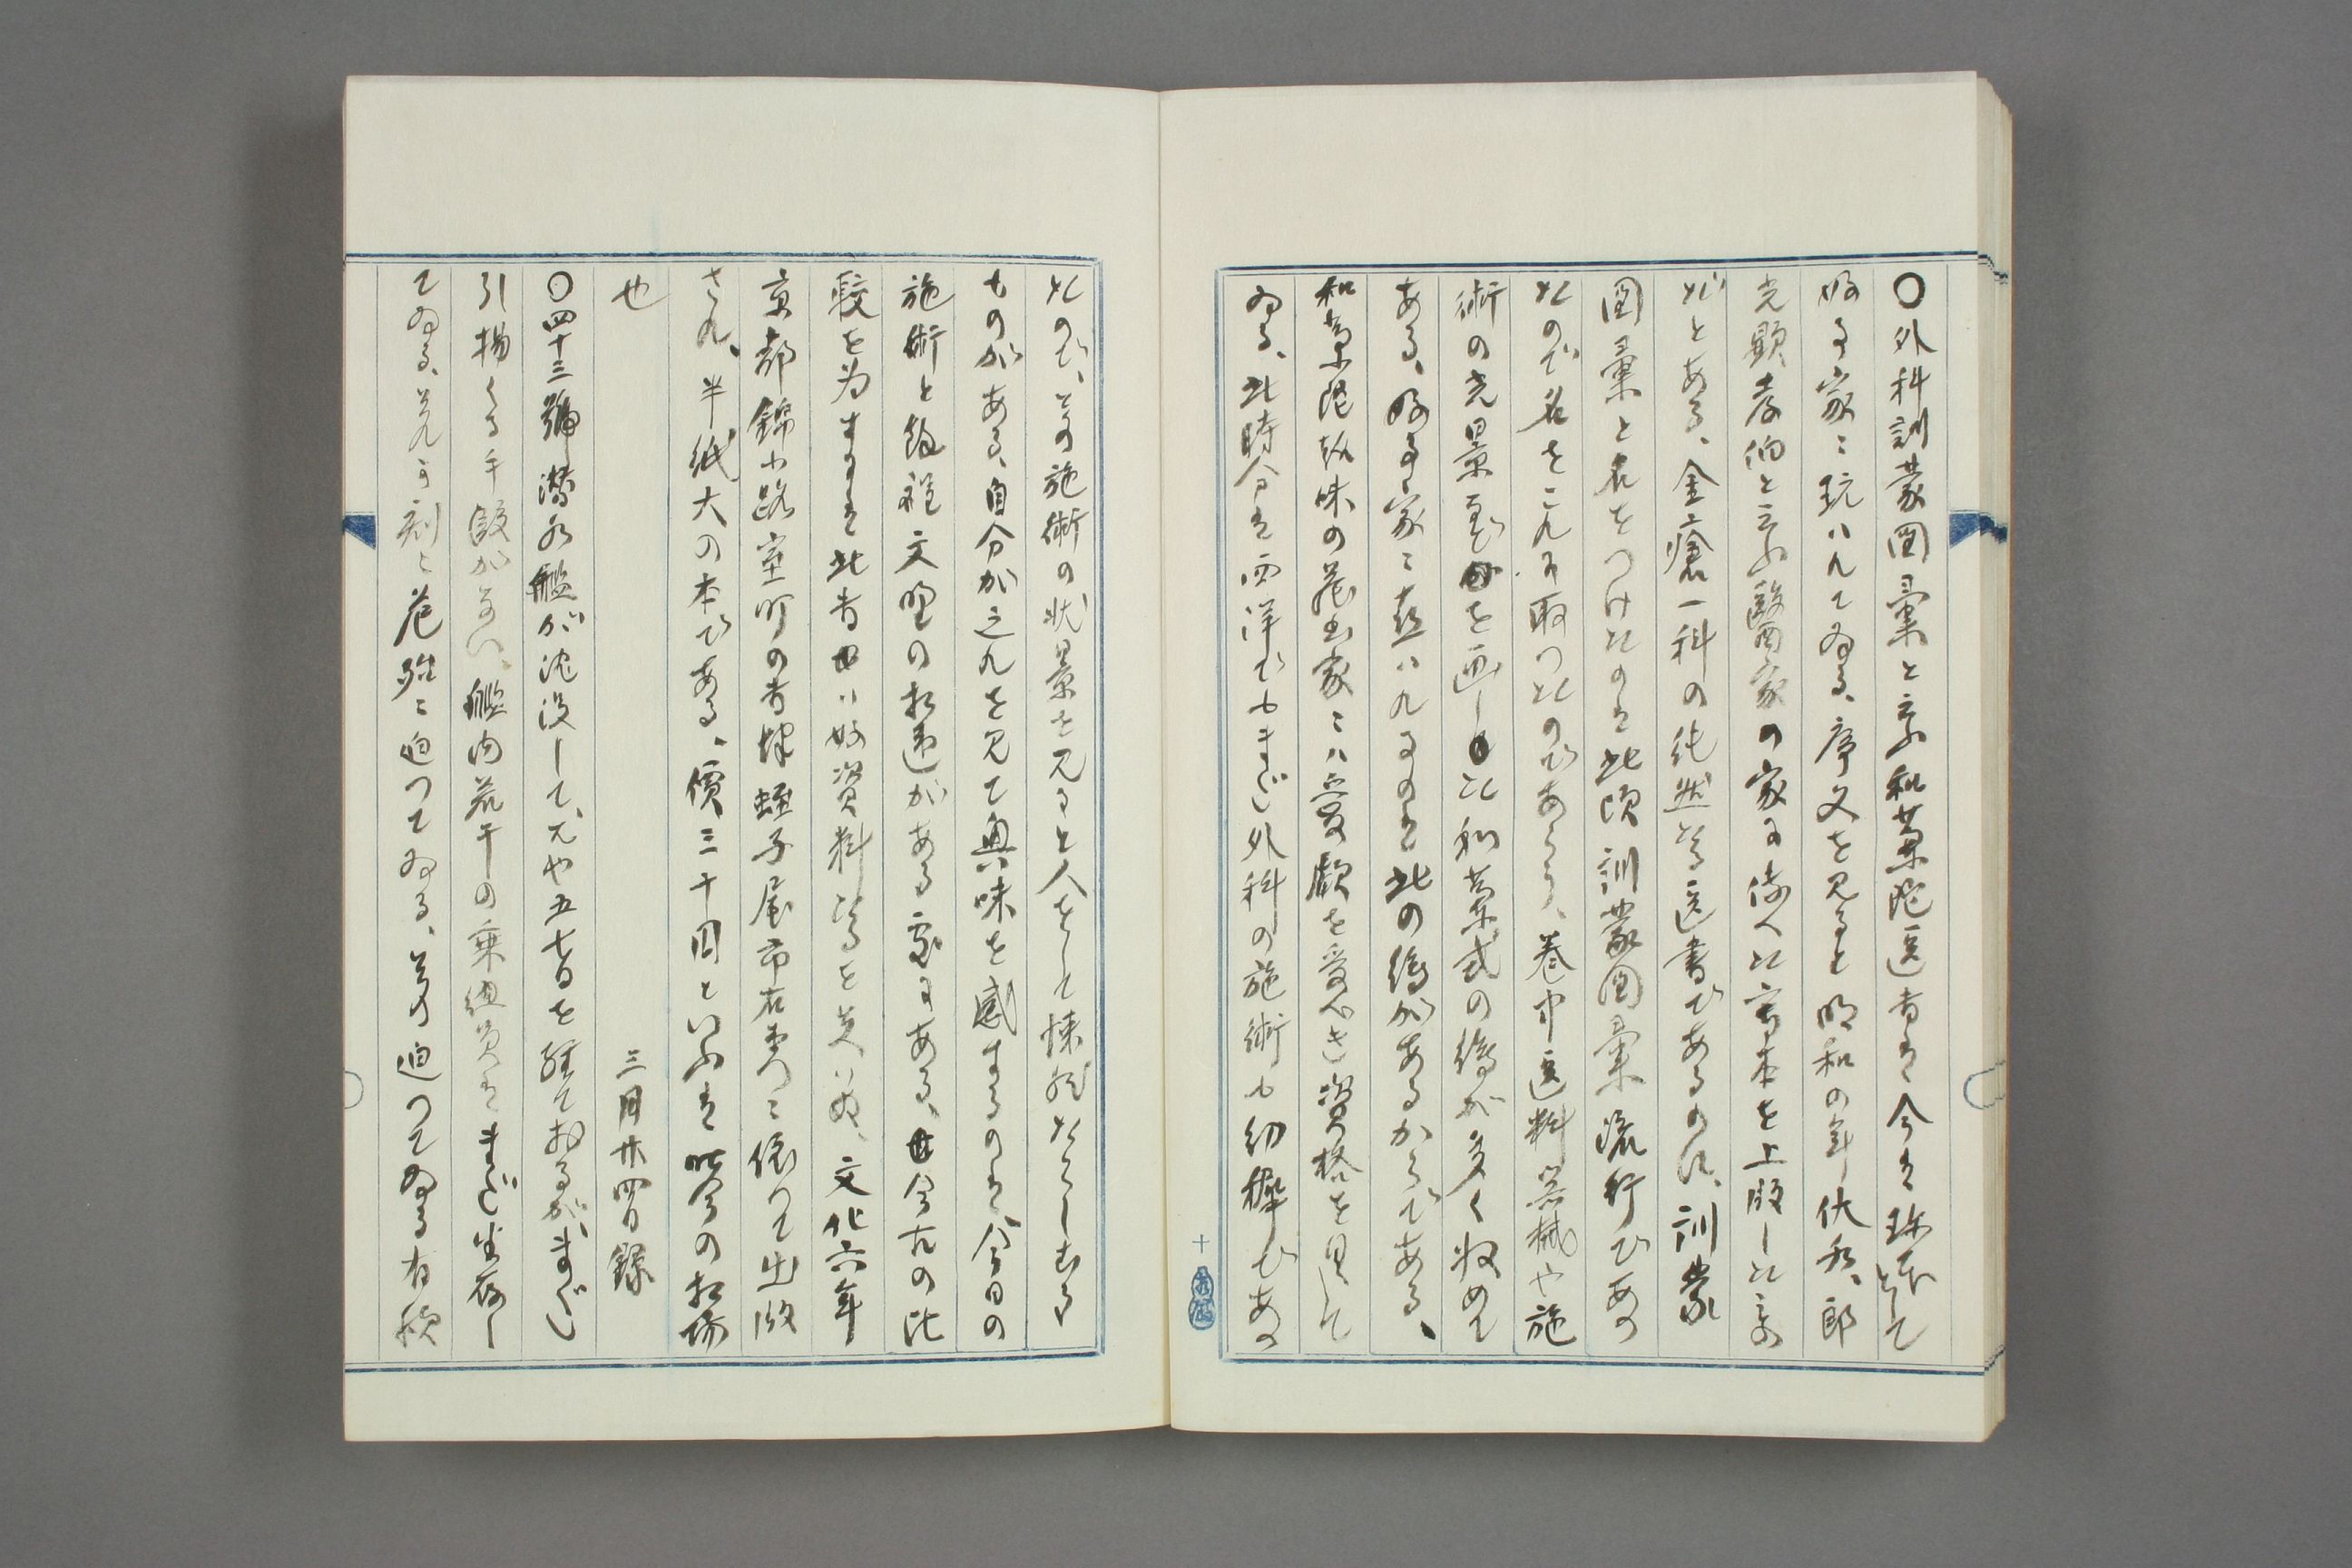 〇外科訓蒙図彙と云ふ和蘭陀医書は今は珍本として
好事家に玩ハれてゐる、序文を見ると明和の年伏水、郎
光顕孝伯と云ふ醫家の家に伝へた寫本を上版した
だとある、金瘡一科の純然たる医書であるのに、訓蒙
図彙と名をつけたのは此頃訓蒙図彙流行であつ
たので名をこれに取つたのであらう、巻中医料器械や施
術の光景を画した和蘭式の絵が多く収めて
ある、好事家に喜ハれるのは此の絵があるからである、
和蘭陀趣味の蔵書家にハ愛顧を受くべき資格を具して
ゐる、此時分は西洋でもまだ外科の施術も幼稚であつ
たので、其の施術の状景を見ると人をして悚然たらしむる
ものがある、自分が之れを見て興味を感ずるのは、今日の
施術と餘程文明の相違がある處にある、今古の比
較を為すには此書ハ好資料たるを失ハぬ、文化六年
京都錦小路室町の書堺蛭子屋市右衛門に依りて出版
され、半紙大の本である、價三十円といふは昨今の相場
也
三月廿四日録
〇四十三號潜水艦が沈没して、尤や五七日を経ておるが、まだ
引揚くる手段がない、艦内若干の乗組員はまだ生存し
てゐる、其れも刻々危殆に迫つてゐる、其の迫つてゐる有様